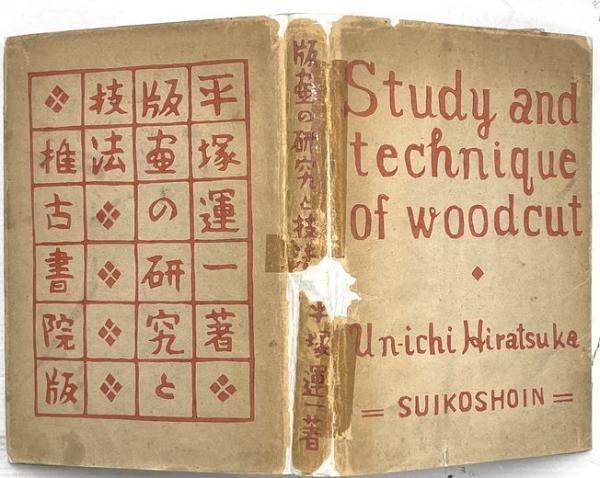 平塚運一著
版畫の研究と
技法
推古書院版
版畫の研究と技法
平塚運一著
Study and
technique
of woodcut
Un-ichi Hiratsuka
= SUIKOSHOIN =